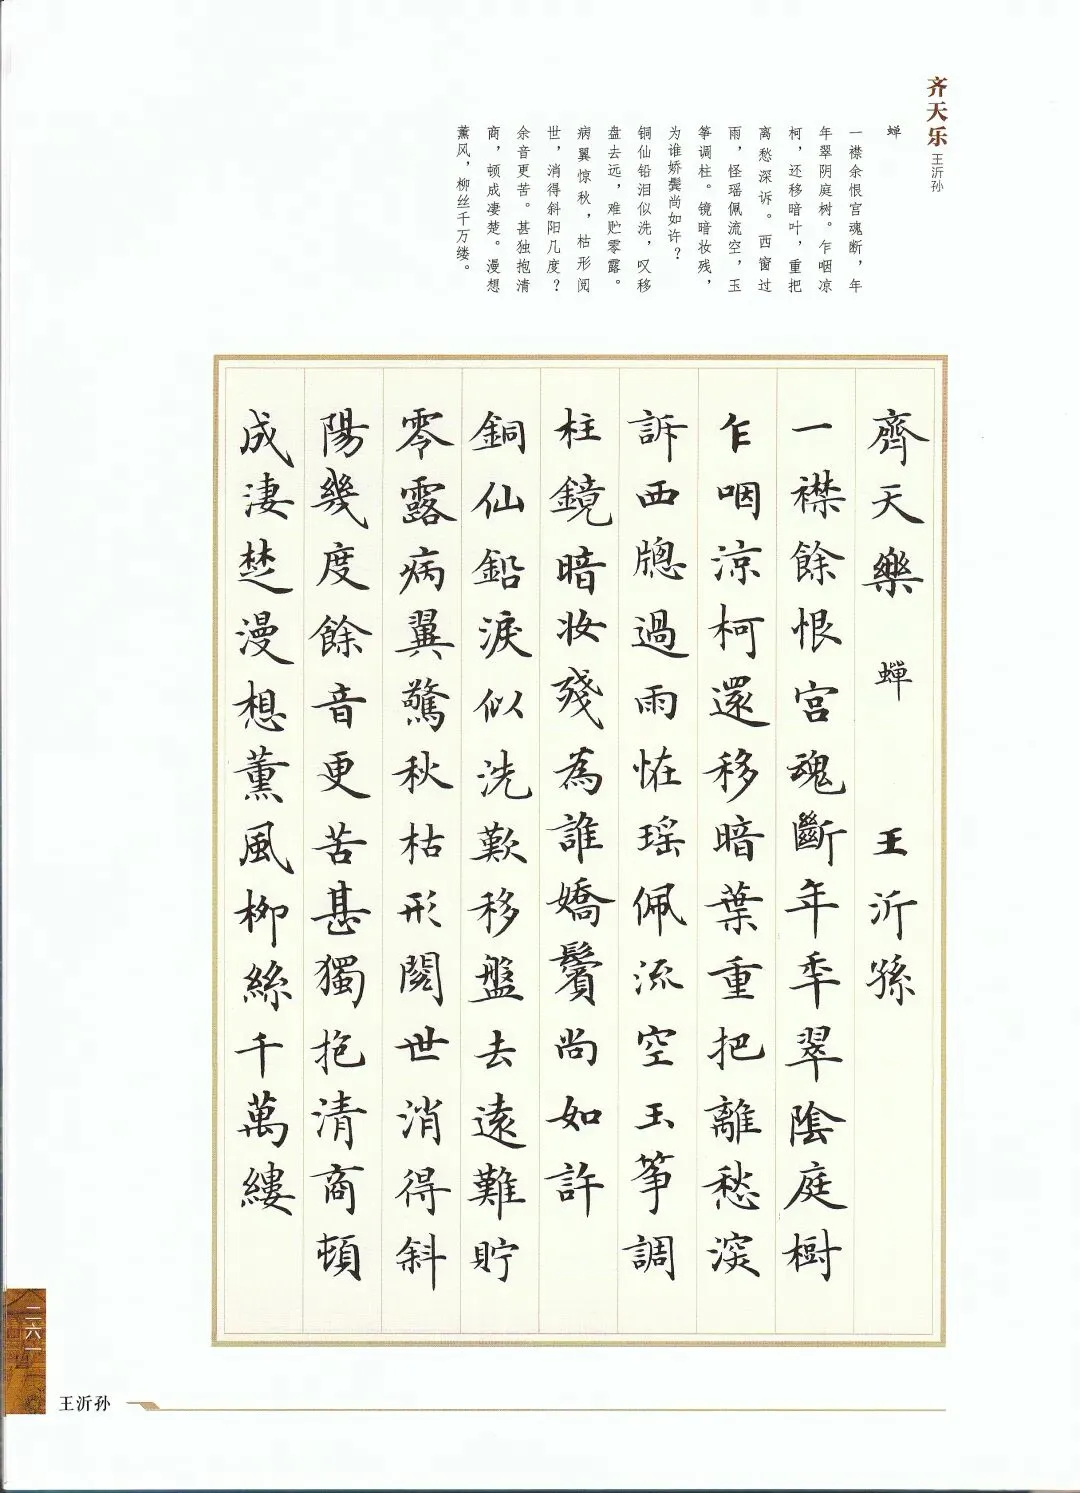 齐天乐
王沂孙
蝉
一襟余恨宫魂断，年
年翠阴庭树。乍咽凉
柯，还移暗叶，重把
离愁深诉。西窗过
雨，怪瑶佩流空，玉
筝调柱。镜暗妆残，
为谁娇鬓尚如许？
铜仙铅泪似洗，叹移
盘去远，难贮零露。
病翼惊秋，枯形阅
世，消得斜阳几度？
余音更苦。甚独抱清
商，顿成凄楚。漫想
薰风，柳丝千万缕。
齊天樂 蟬 王沂孫
一襟餘恨宮魂斷年年翠陰庭樹
乍咽涼柯還移暗葉重把離愁深
訴西牕過雨恠瑶佩流空玉筝調
柱鏡暗妝殘為誰嬌鬢尚如許
銅仙鉛淚似洗歎移盤去遠難貯
零露病翼驚秋枯形閱世消得斜
陽幾度餘音更苦甚獨抱清商頓
成淒楚漫想薰風柳絲千萬縷
二六一
王沂孙